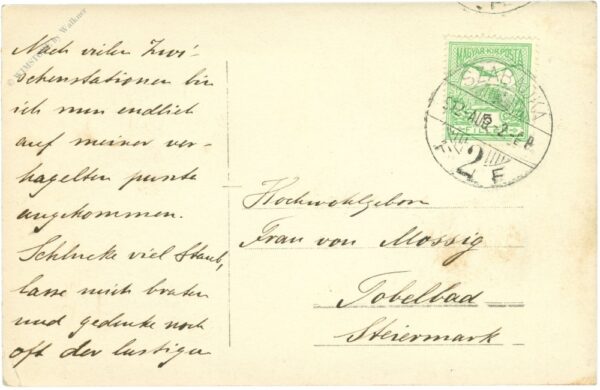 Nach vielen Zwi-
schenstationen bin
ich nun endlich
auf meiner ver-
hagelten puszta
angekommen.
Schlucke viel Staub,
lasse mich braten
und gedenke noch
oft der lustigen
MAGYAR KIR. POSTA
SZABADKA
912 AUG. 2
2 F
Hochwohlgeboren
Frau von Mossig
Tobelbad
Steiermark